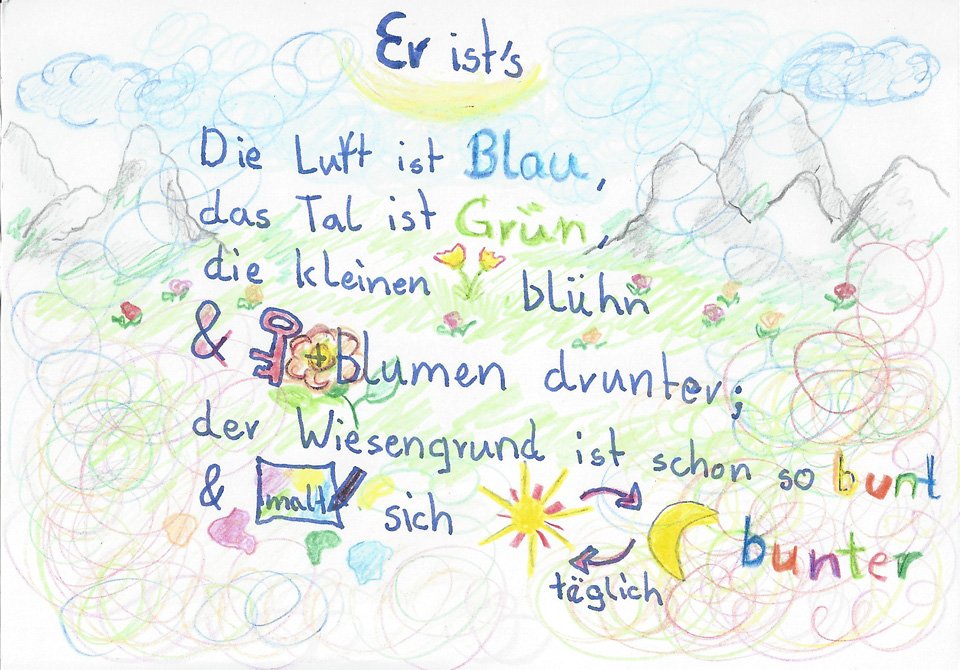 Er ist's
Die Luft ist Blau,
das Tal ist Grün,
die kleinen blühn
& + Blumen drunter;
der Wiesengrund ist schon so bunt
& malt sich bunter
täglich